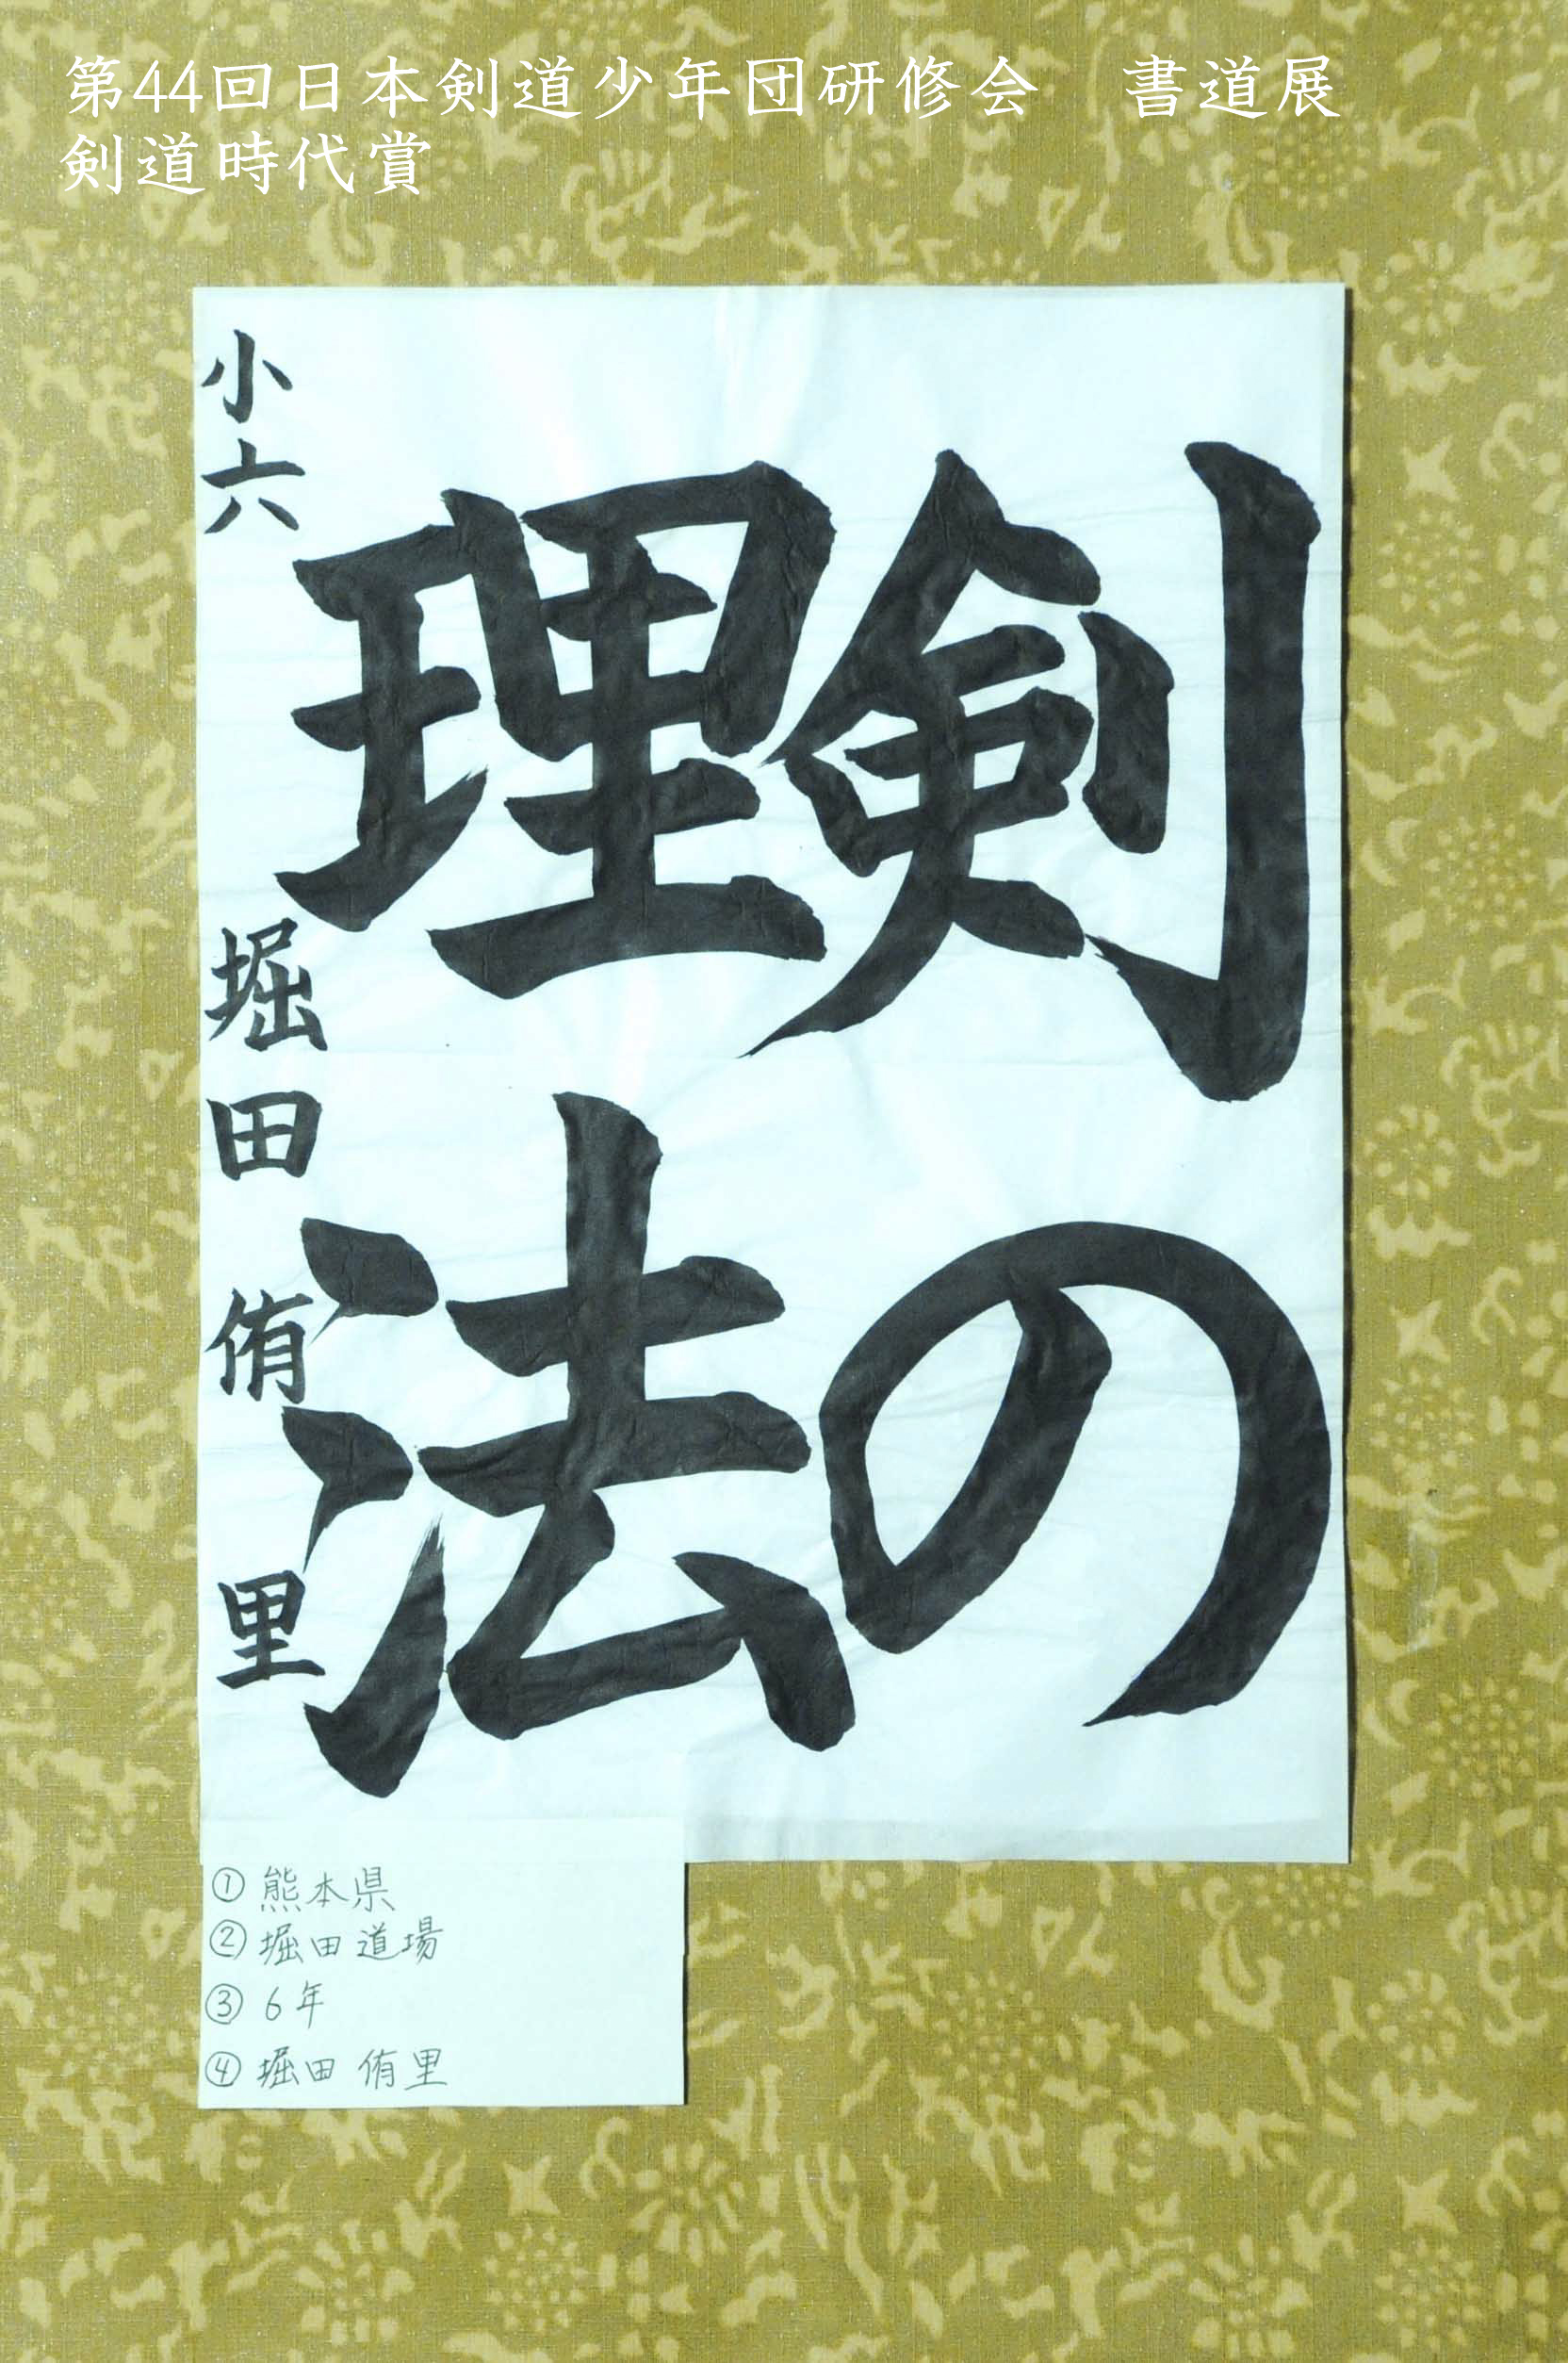 第44回日本剣道少年団研修会　書道展
剣道時代賞
剣の
理法
小六 堀田侑里
①熊本県
②堀田道場
③6年
④堀田 侑里